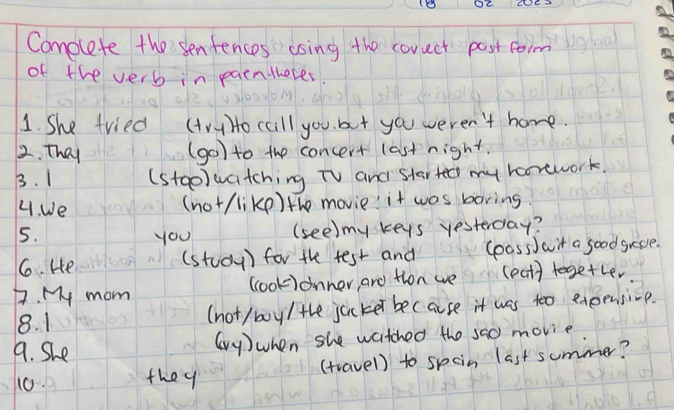 18 02 2025
Complete the sentences using the correct past form
of the verb in parentheses.
1. She tried (try) to call you. but you weren't home.
2. They (go) to the concert last night.
3. I (stop) watching TV and started my homework.
4. We (not/like) the movie: it was boring.
5. you (see) my keys yesterday?
6. He (study) for the test and (pass) wit a good grade.
7. My mom (cook) dinner, and then we (eat) together.
8. I (not/buy/the jacket because it was too expensive.
9. She (cry) when she watched the sad movie
10. they (travel) to spain last summer?